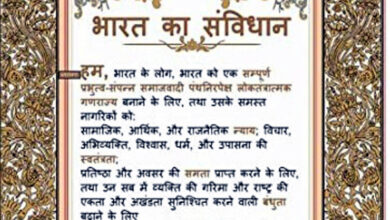 भारत का संविधान
हम, भारत के लोग, भारत को एक सम्पूर्ण
प्रभुत्व-संपन्न समाजवादी पंथनिरपेक्ष लोकतंत्रात्मक
गणराज्य बनाने के लिए, तथा उसके समस्त
नागरिकों को:
सामाजिक, आर्थिक, और राजनैतिक न्याय; विचार,
अभिव्यक्ति, विश्वास, धर्म, और उपासना की
स्वतंत्रता;
प्रतिष्ठा और अवसर की समता प्राप्त करने के लिए,
तथा उन सब में व्यक्ति की गरिमा और राष्ट्र की
एकता और अखंडता सुनिश्चित करने वाली बंधुता
बढ़ाने के लिए